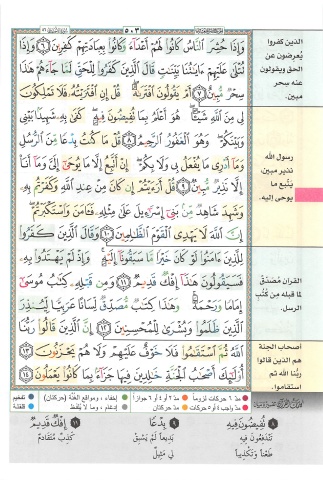 ٥٠٣
وَإِذَا حُشِرَ النَّاسُ كَانُوا لَهُمْ أَعْدَاءً وَكَانُوا بِعِبَادَتِهِمْ كَافِرِينَ ٦ وَإِذَا
تُتْلَى عَلَيْهِمْ ءَايَاتُنَا بَيِّنَاتٍ قَالَ الَّذِينَ كَفَرُوا لِلْحَقِّ لَمَّا جَاءَهُمْ هَذَا
سِحْرٌ مُّبِينٌ ٧ أَمْ يَقُولُونَ افْتَرَاهُ قُلْ إِنِ افْتَرَيْتُهُ فَلَا تَمْلِكُونَ
لِي مِنَ اللَّهِ شَيْئًا هُوَ أَعْلَمُ بِمَا تُفِيضُونَ فِيهِ كَفَى بِهِ شَهِيدًا بَيْنِي
وَبَيْنَكُمْ وَهُوَ الْغَفُورُ الرَّحِيمُ ٨ قُلْ مَا كُنْتُ بِدْعًا مِّنَ الرُّسُلِ
وَمَا أَدْرِي مَا يُفْعَلُ بِي وَلَا بِكُمْ إِنْ أَتَّبِعُ إِلَّا مَا يُوحَى إِلَيَّ وَمَا أَنَا
إِلَّا نَذِيرٌ مُّبِينٌ ٩ قُلْ أَرَءَيْتُمْ إِن كَانَ مِنْ عِندِ اللَّهِ وَكَفَرْتُم بِهِ
وَشَهِدَ شَاهِدٌ مِّن بَنِي إِسْرَائِيلَ عَلَى مِثْلِهِ فَآمَنَ وَاسْتَكْبَرْتُمْ
إِنَّ اللَّهَ لَا يَهْدِي الْقَوْمَ الظَّالِمِينَ ١٠ وَقَالَ الَّذِينَ كَفَرُوا
لِلَّذِينَ ءَامَنُوا لَوْ كَانَ خَيْرًا مَّا سَبَقُونَا إِلَيْهِ وَإِذْ لَمْ يَهْتَدُوا بِهِ
فَسَيَقُولُونَ هَذَا إِفْكٌ قَدِيمٌ ١١ وَمِن قَبْلِهِ كِتَابُ مُوسَى
إِمَامًا وَرَحْمَةً وَهَذَا كِتَابٌ مُّصَدِّقٌ لِّسَانًا عَرَبِيًّا لِّيُنذِرَ
الَّذِينَ ظَلَمُوا وَبُشْرَى لِلْمُحْسِنِينَ ١٢ إِنَّ الَّذِينَ قَالُوا رَبُّنَا
اللَّهُ ثُمَّ اسْتَقَامُوا فَلَا خَوْفٌ عَلَيْهِمْ وَلَا هُمْ يَحْزَنُونَ ١٣
أُولَئِكَ أَصْحَابُ الْجَنَّةِ خَالِدِينَ فِيهَا جَزَاءً بِمَا كَانُوا يَعْمَلُونَ ١٤
الذين كفروا
يُعرضون عن
الحق ويقولون
عنه سِحر
مبين.
رسول الله
نذير مبين،
يتَّبع ما
يوحى إليه.
القرآن مُصَدِّق
لما قبله مِن كُتب
الرسل.
أصحاب الجنة
هم الذين قالوا
ربُّنا الله ثم
استقاموا.
مدّ ٦ حركات لزوماً
مدّ ٢ أو ٤ أو ٦ جوازاً
إخفاء، ومواقع الغُنَّة (حركتان)
تفخيم
مدّ واجب ٤ أو ٥ حركات
مدّ حركتان
إدغام، وما لا يُلفَظ
قلقلة
٨ تُفِيضُونَ فِيهِ
تندفعون فيه
طعناً وتكذيباً
٩ بِدْعًا
بديعاً لم يسبق
لي مثيل
١١ إِفْكٌ قَدِيمٌ
كذبٌ متقادم